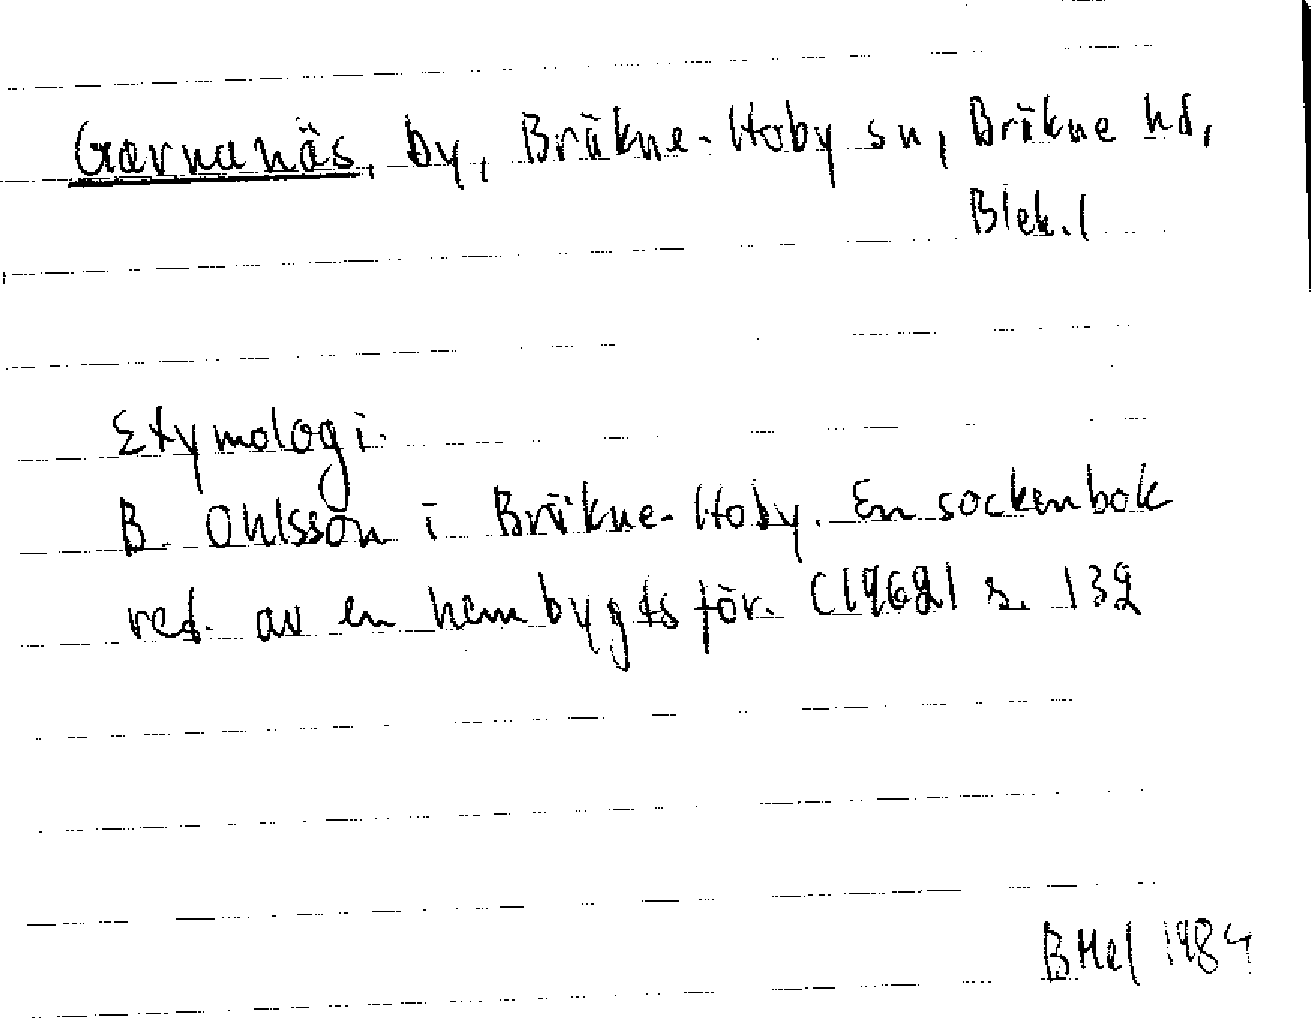 Garnanäs, by, Bräkne-Hoby sn, Bräkne hd,
Blek.l
Etymologi.
B. Ohlsson i Bräkne-Hoby. En sockenbok
red. av en hembygdsför. (1962) s. 132
BHel 1984